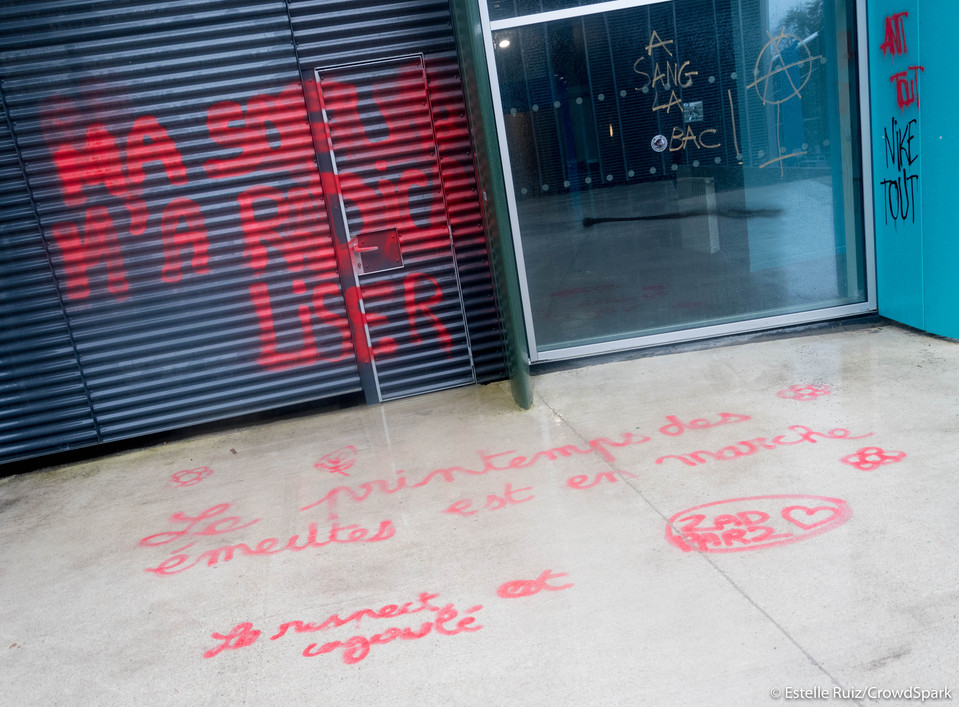 MA SOEUR
M'A RADICA
LISER
A
SANG
LA
BAC
A
ANT
TOUT
NIKE
TOUT
Le printemps des
émeuttes est en marche
ZAD
PAR2
Le respect est
cagoulé
© Estelle Ruiz/CrowdSpark